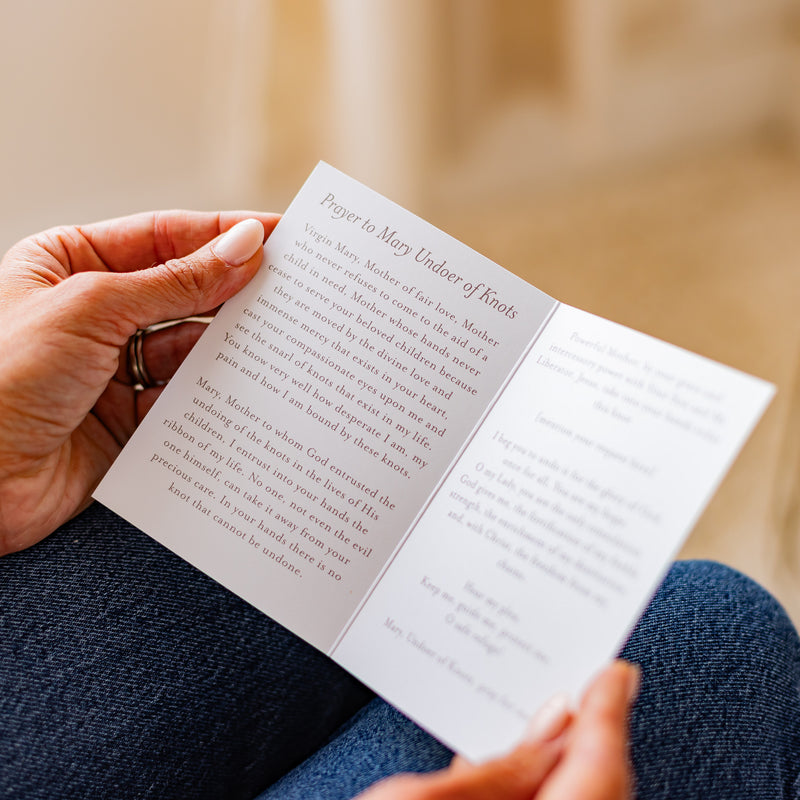 Prayer to Mary Undoer of Knots
Virgin Mary, Mother of fair love, Mother
who never refuses to come to the aid of a
child in need. Mother whose hands never
cease to serve your beloved children because
they are moved by the divine love and
immense mercy that exists in your heart,
cast your compassionate eyes upon me and
see the snarl of knots that exist in my life.
You know very well how desperate I am, my
pain and how I am bound by these knots.
Mary, Mother to whom God entrusted the
undoing of the knots in the lives of His
children, I entrust into your hands the
ribbon of my life. No one, not even the evil
one himself, can take it away from your
precious care. In your hands there is no
knot that cannot be undone.
Powerful Mother, by your grace and
intercessory power with Your Son and My
Liberator, Jesus, take into your hands today
this knot
[mention your request here]
I beg you to undo it for the glory of God,
once for all. You are my hope.
O my Lady, you are the only consolation
God gives me, the fortification of my feeble
strength, the enrichment of my destitution
and, with Christ, the freedom from my
chains.
Hear my plea.
Keep me, guide me, protect me,
O safe refuge!
Mary, Undoer of Knots, pray for